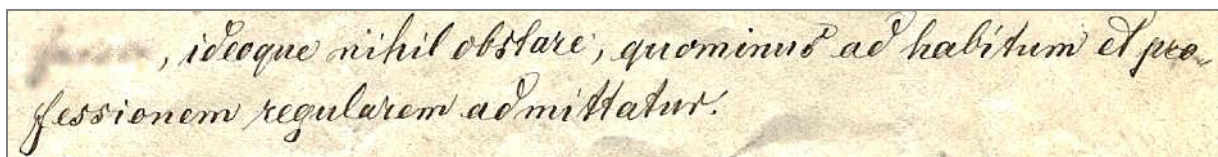 , ideoque nihil obstare, quominus ad habitum et pro-
fessionem regularem admittatur.